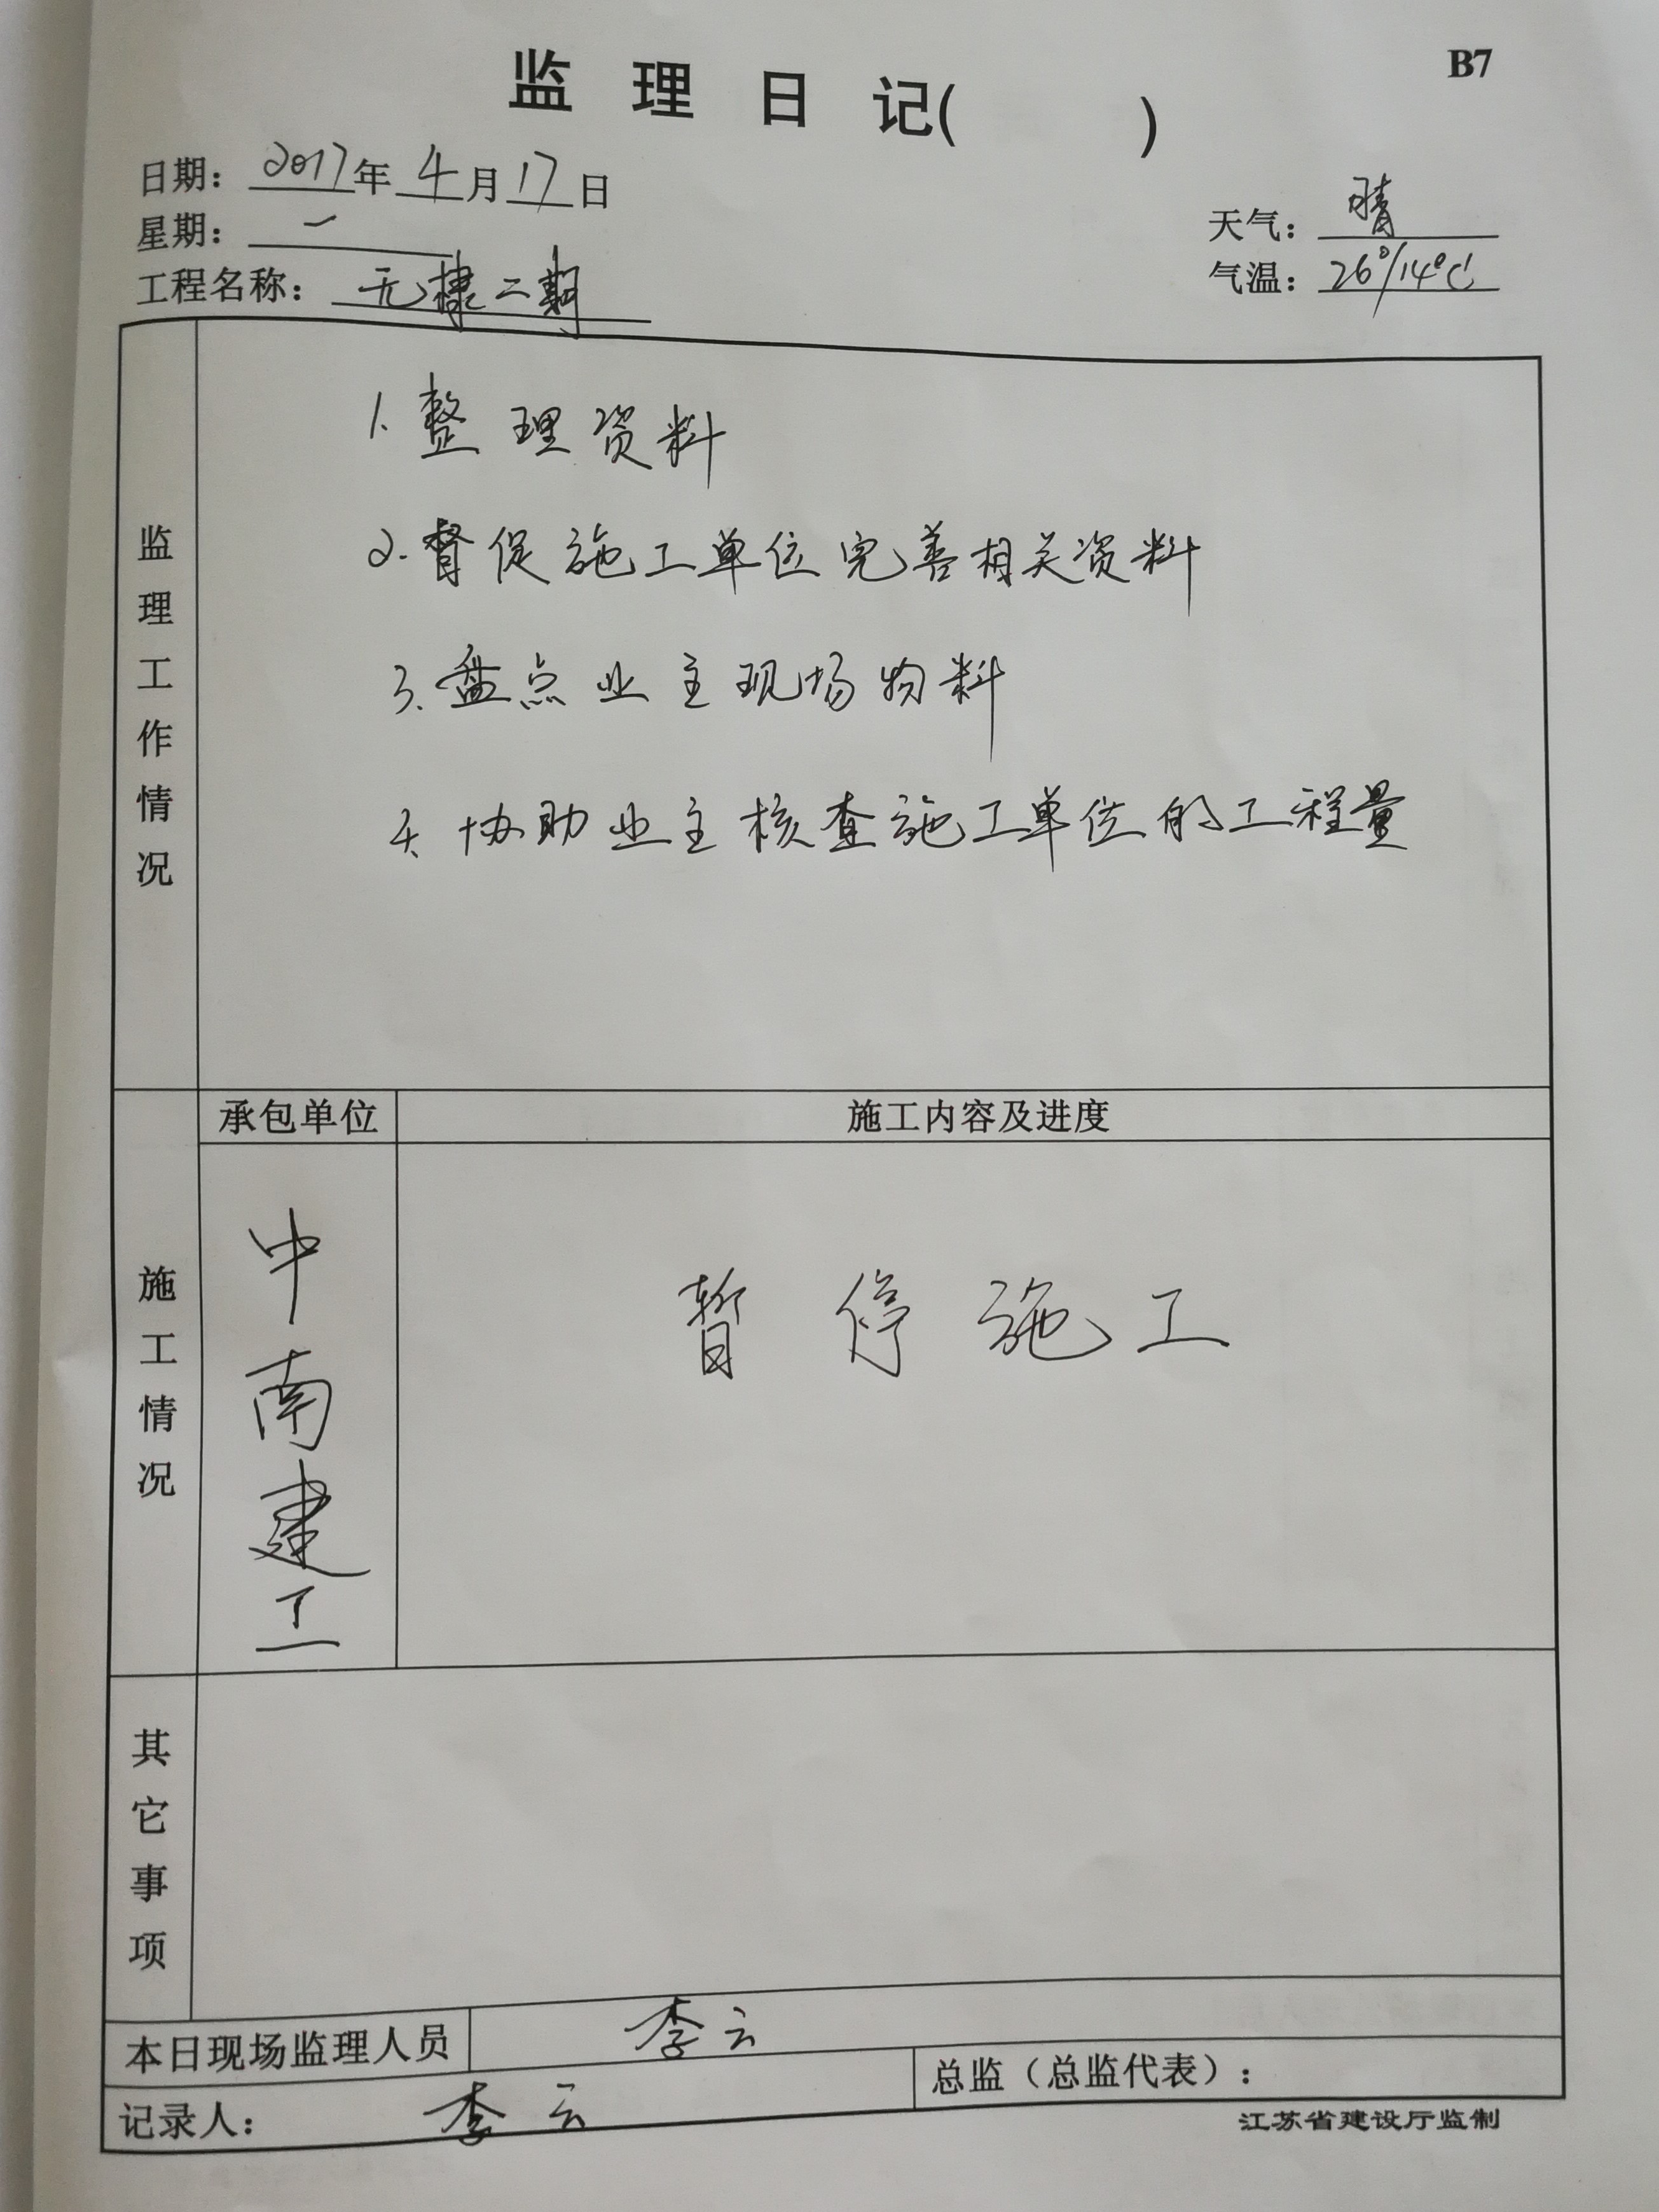 B7
监理日记(  )
日期：2017年4月17日
星期：一
天气：晴
气温：26°/14°C
工程名称：无棣二期
监理工作情况
1. 整理资料
2. 督促施工单位完善相关资料
3. 盘点业主现场物料
4. 协助业主核查施工单位的工程量
施工情况
承包单位
施工内容及进度
中南建工
暂停施工
其它事项
本日现场监理人员 李云
记录人：李云
总监（总监代表）：
江苏省建设厅监制